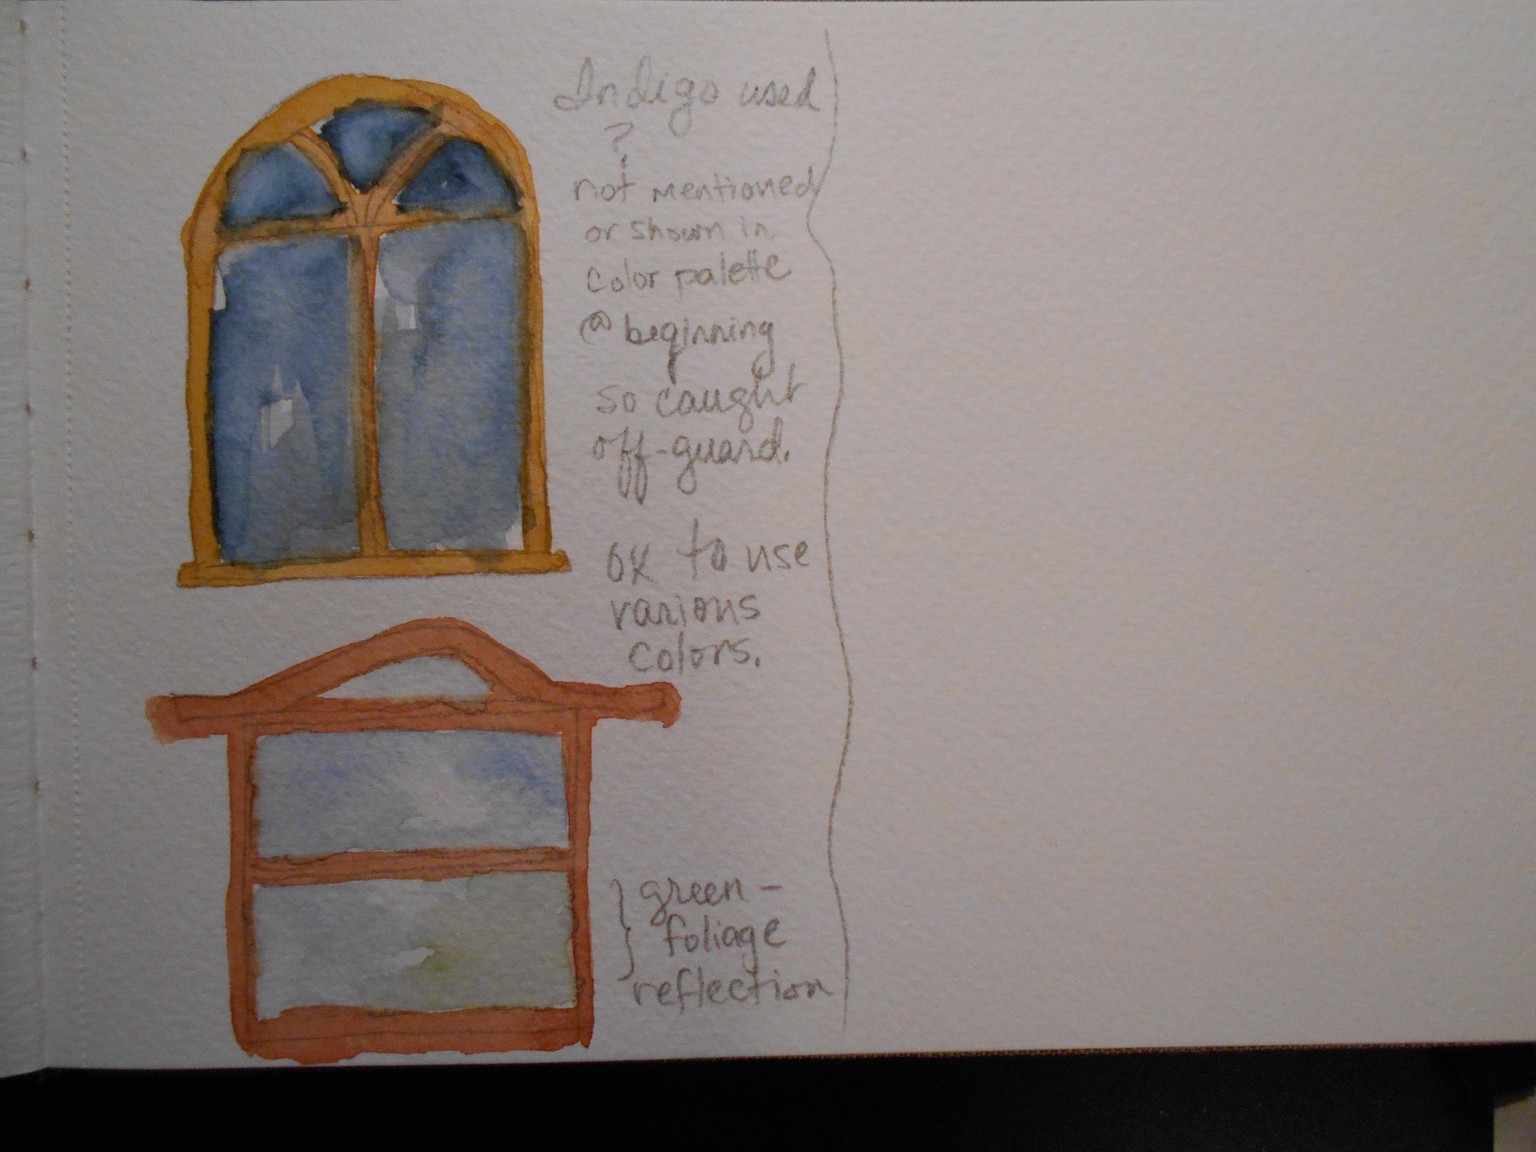 Indigo used
?
not mentioned
or shown in
color palette
@ beginning
so caught
off-guard.
ok to use
various
colors.
} green -
} foliage
reflection